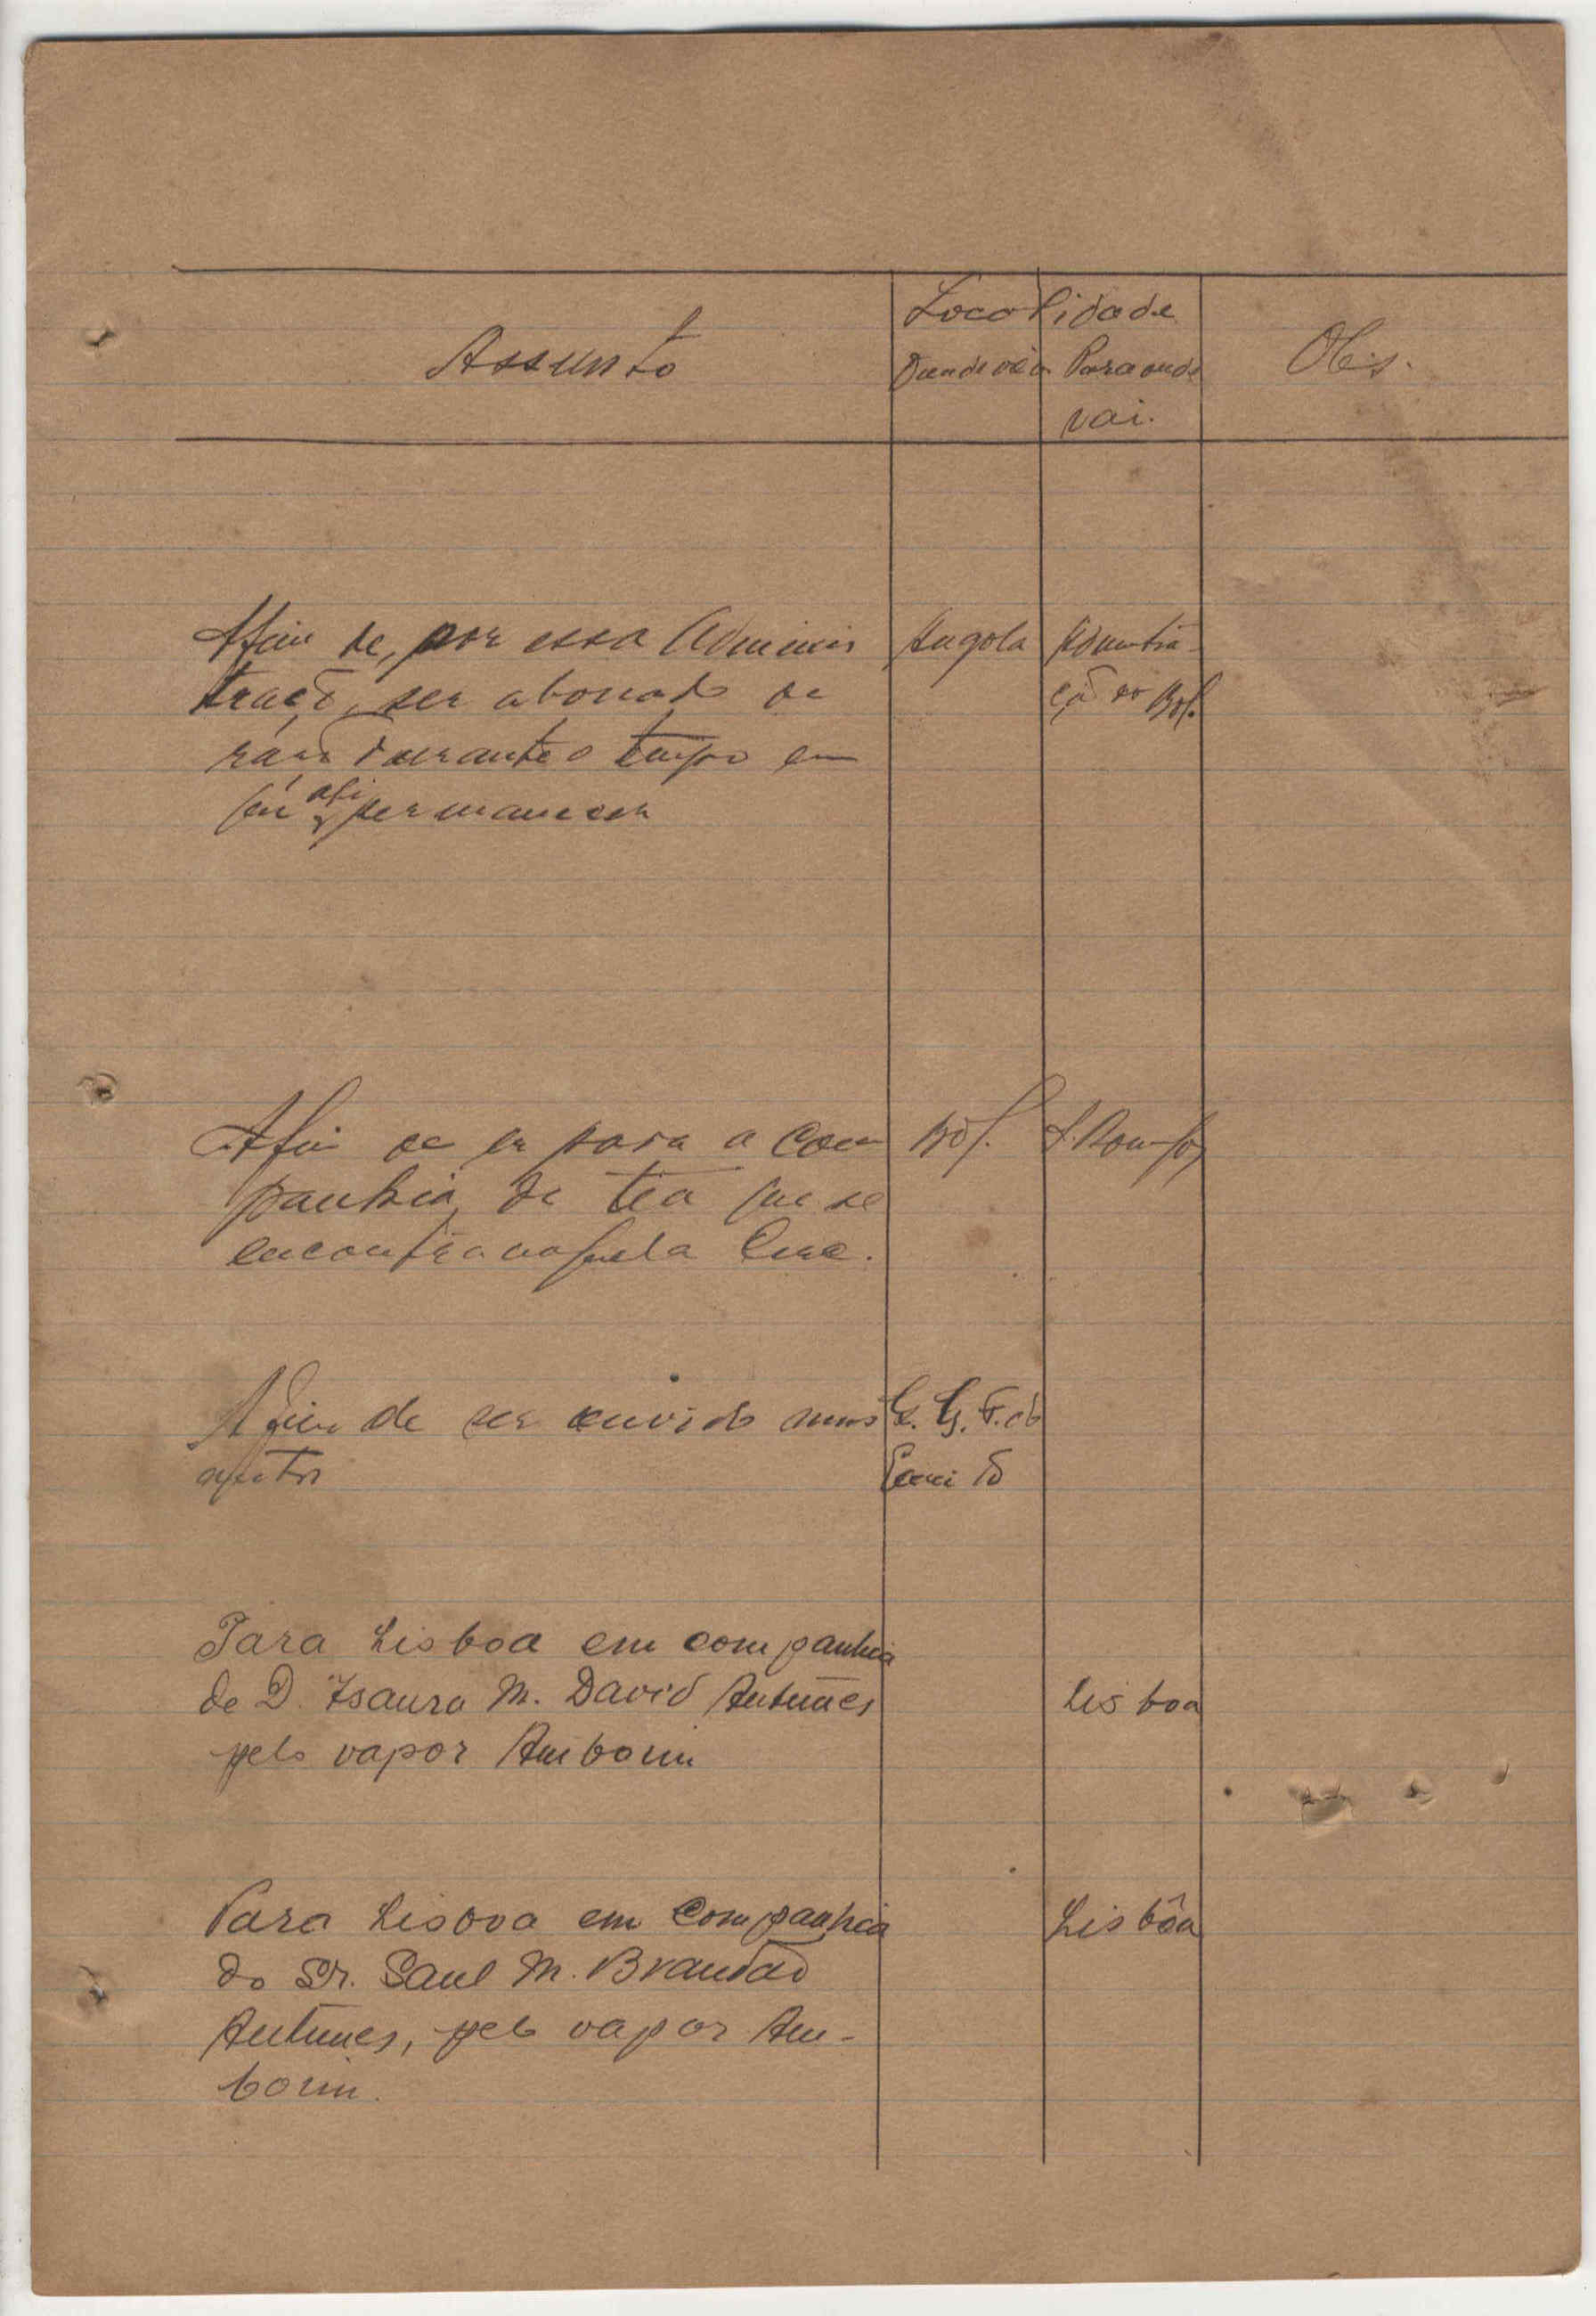 Localidade
Assunto
Donde vem
Para onde
vai.
Obs.
Afim de, por essa Adminis
tração, ser abonado de
ração durante o tempo em
que ali permanecer
Angola
Admtra-
ção do Bol.
Afim de ir para a Com
panhia de tia que se
encontra naquela
Bol.
Afim de ser ouvido nuns
autos
Para Lisboa em companhia
de D. Isaura M. David Antunes
pelo vapor Amboim
Lisboa
Para Lisboa em Companhia
do Sr. Saul M. Brandão
Antunes, pelo vapor Am-
boim.
Lisbôa